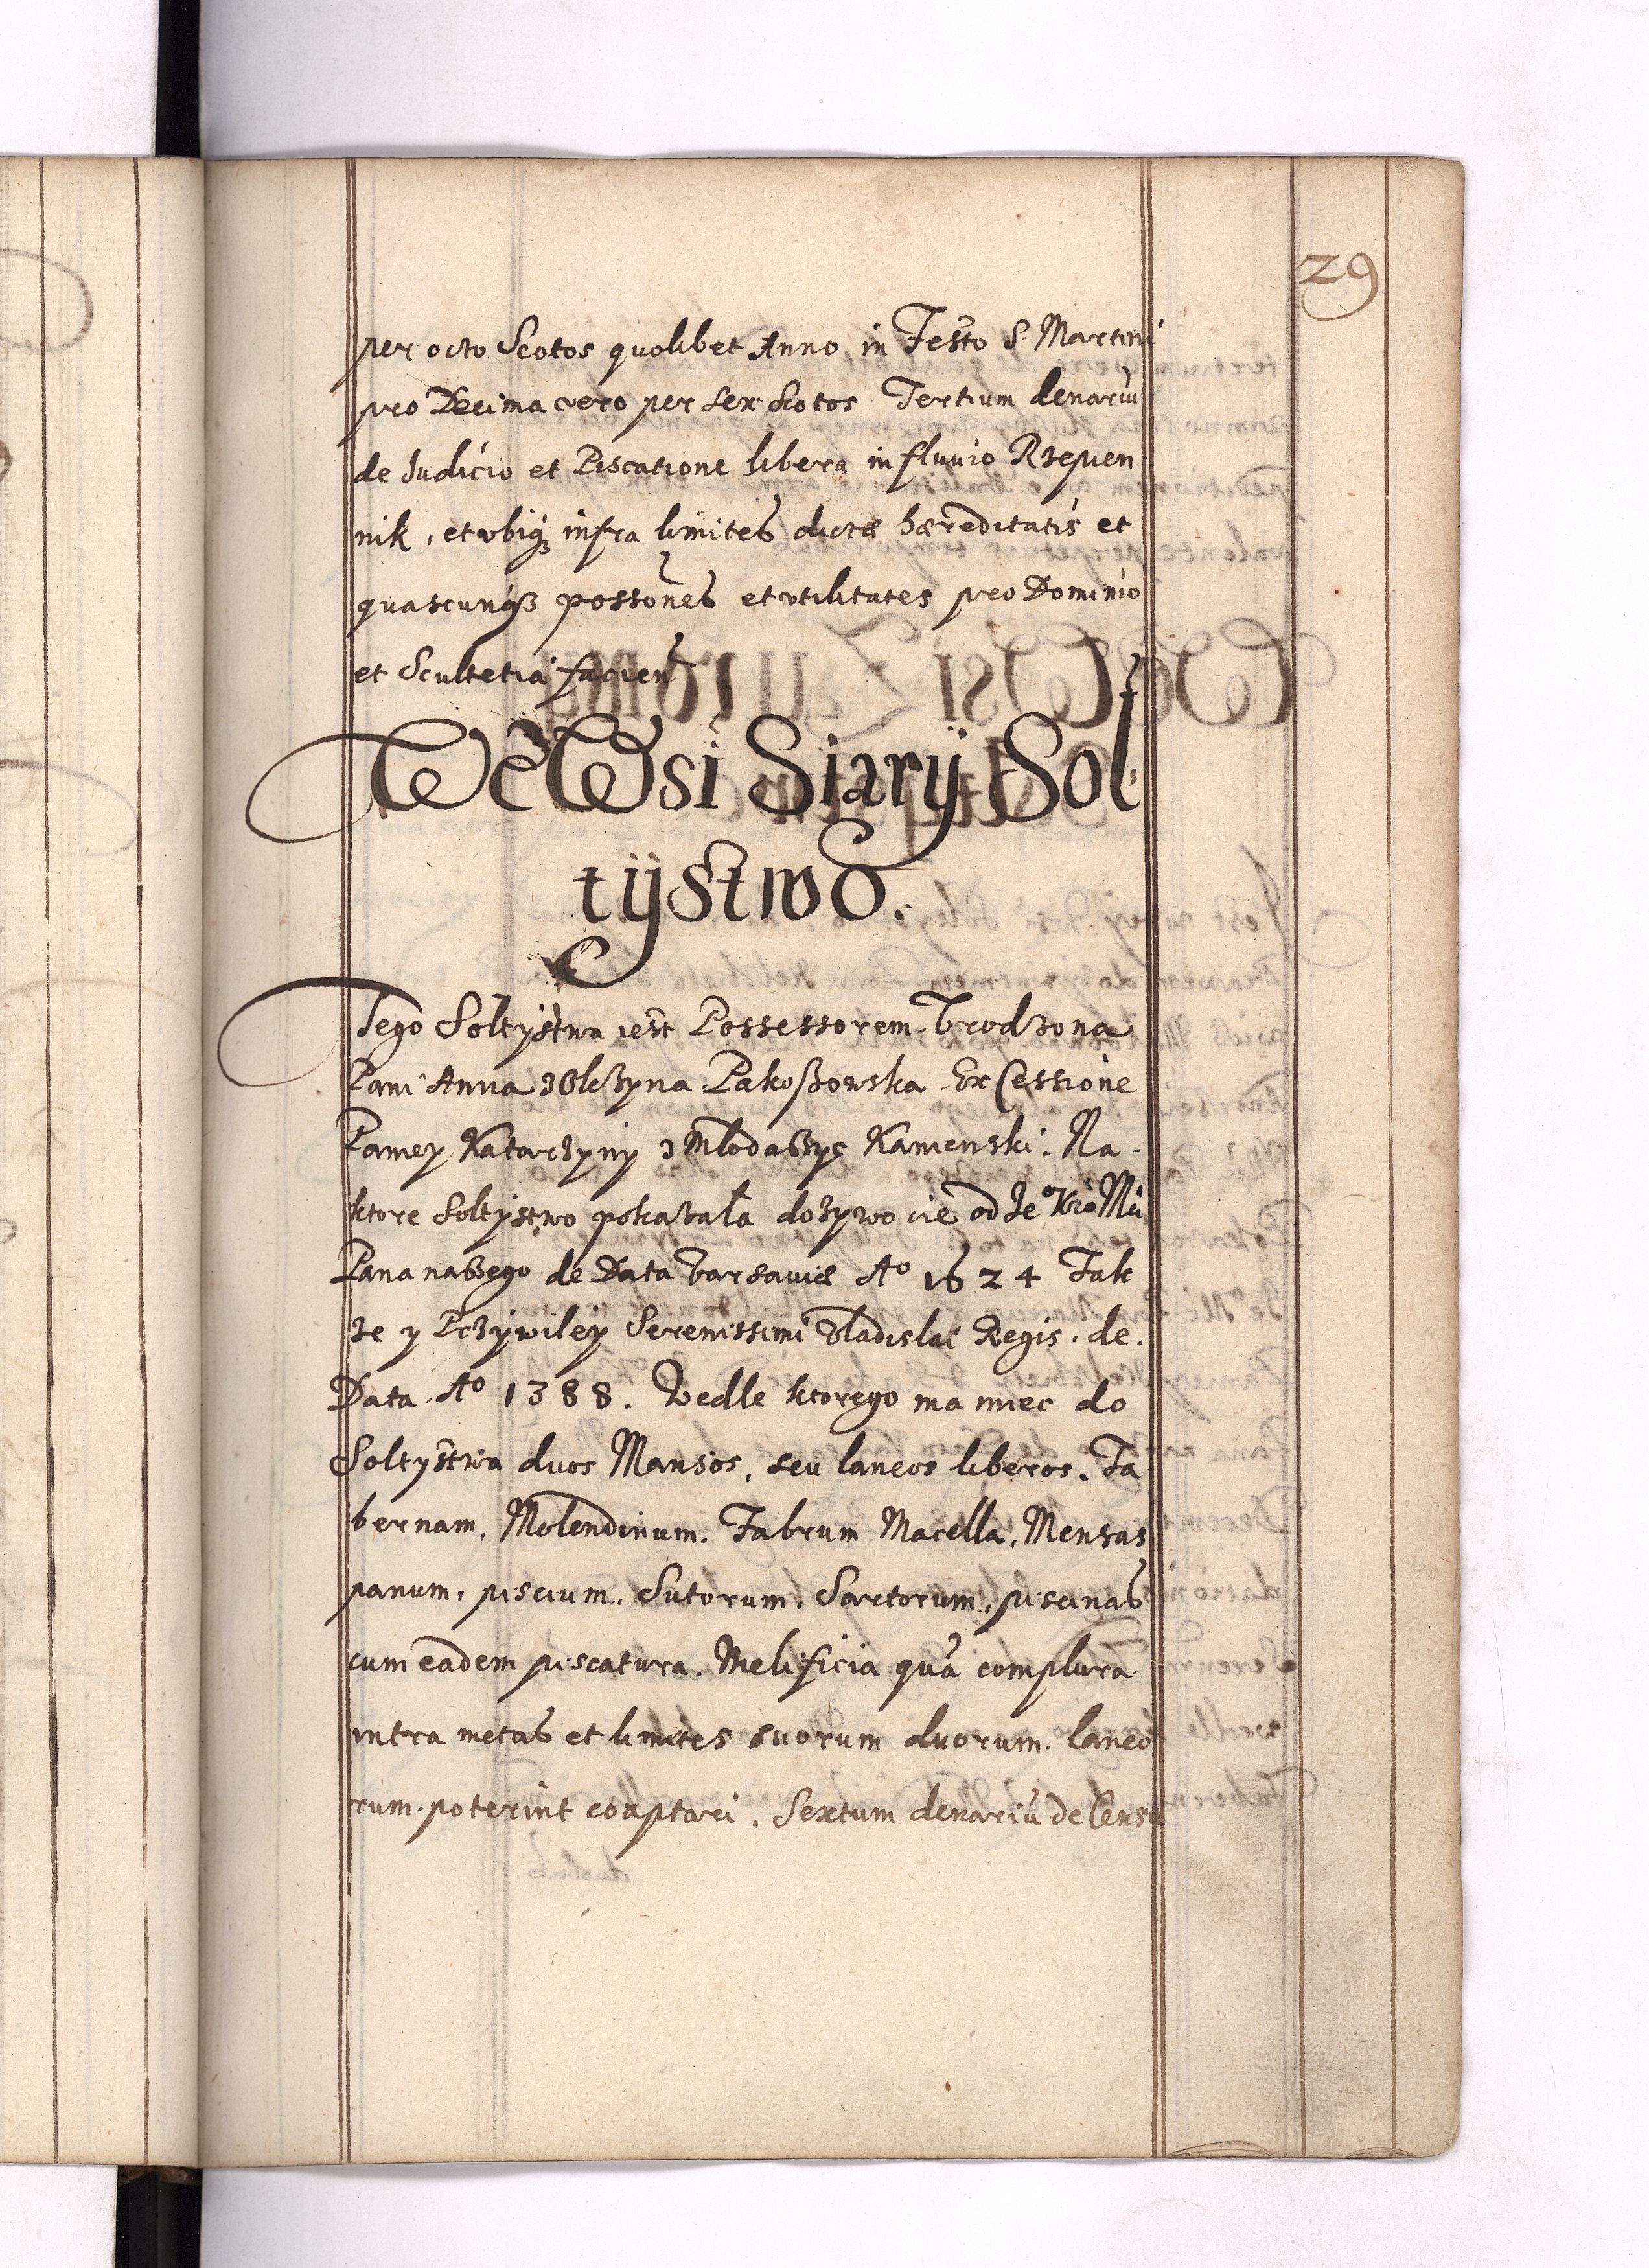 29
per octo Scotos quolibet Anno in Festo S. Martini
pro Decima vero per sex Scotos Tertium denariu
de Judicio et Piscatione libera in fluvio Rzepien
nik, et ubiq3 infra limites dictæ hæreditatis et
quascunq3 possones et utilitates pro Dominio
et Scultetia facien
We Wsi Siary Sol:
tÿstwo.
Tego Soltystwa iest Possessorem Vrodzona
Pani Anna Pakoszowska Ex Cessione
Paniey Katarzyny z Kamenski. Na
ktore Soltystwo pokazała dozywocie od Je° Kro Mci
Pana naszego de Data Varsaviæ A° 1624 Tak
ze y Przywiley Serenissimi Vladislai Regis. de.
Data. A° 1388. Vedle ktorego ma miec do
Soltystwa duos Mansos, seu laneos liberos. Ta
bernam, Molendinum. Fabrum Macella, Mensas
panum, piscium. Sutorum. Sartorum, piscinas
cum eadem piscatura. Melificia qua complura
intra metas et limites suorum duorum. laneo
rum. poterint coaptari. Sextum denariu de Censu